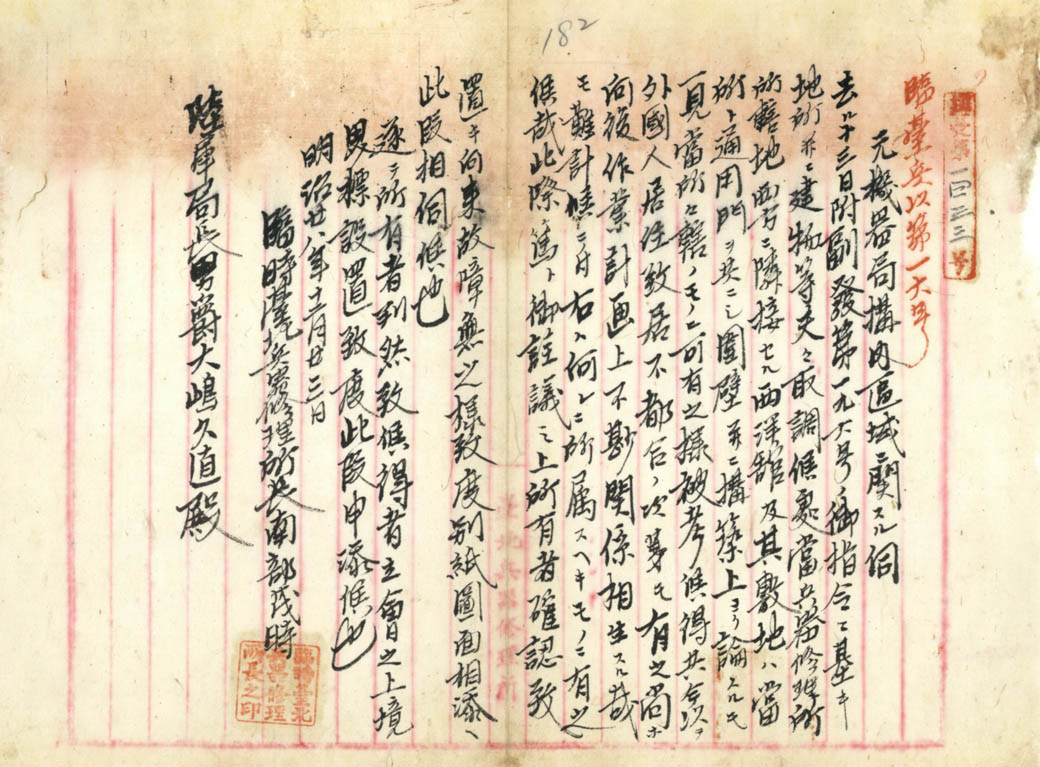 182
理文第一四三三号
臨臺兵以第一六号
元機器局構内區域ニ関スル伺
去ル十三日附副發第一九六号ノ御指令ニ基キ
地所并ニ建物等夫々取調候處當兵器修理所
所轄地西方ニ隣接セル西洋舘及其敷地ハ當
所ト通用門ヲ共ニシ圍壁并ニ構築上ヨリ論スルモ
一見當所之轄ノモノニ可有之様被考候得共今以テ
外國人居住致居不都合ノ次第モ有之尚ホ
向後作業計画上不尠関係相生スル哉
モ難計 ニ付右ハ何レニ所属スヘキモノニ有之
候哉此際篤ト御詮議之上所有者確認致
置キ向来故障無之様致度別紙圖面相添ヘ
此段相伺候也
逐テ所有者判然致候得者立會之上境
界標設置致度此段申添候也
明治廿八年十二月廿三日
臨時臺北兵器修理所長南部茂時
臨時臺北兵器修理所長之印
陸軍局長男爵大嶋久直殿
臺北兵器修理所